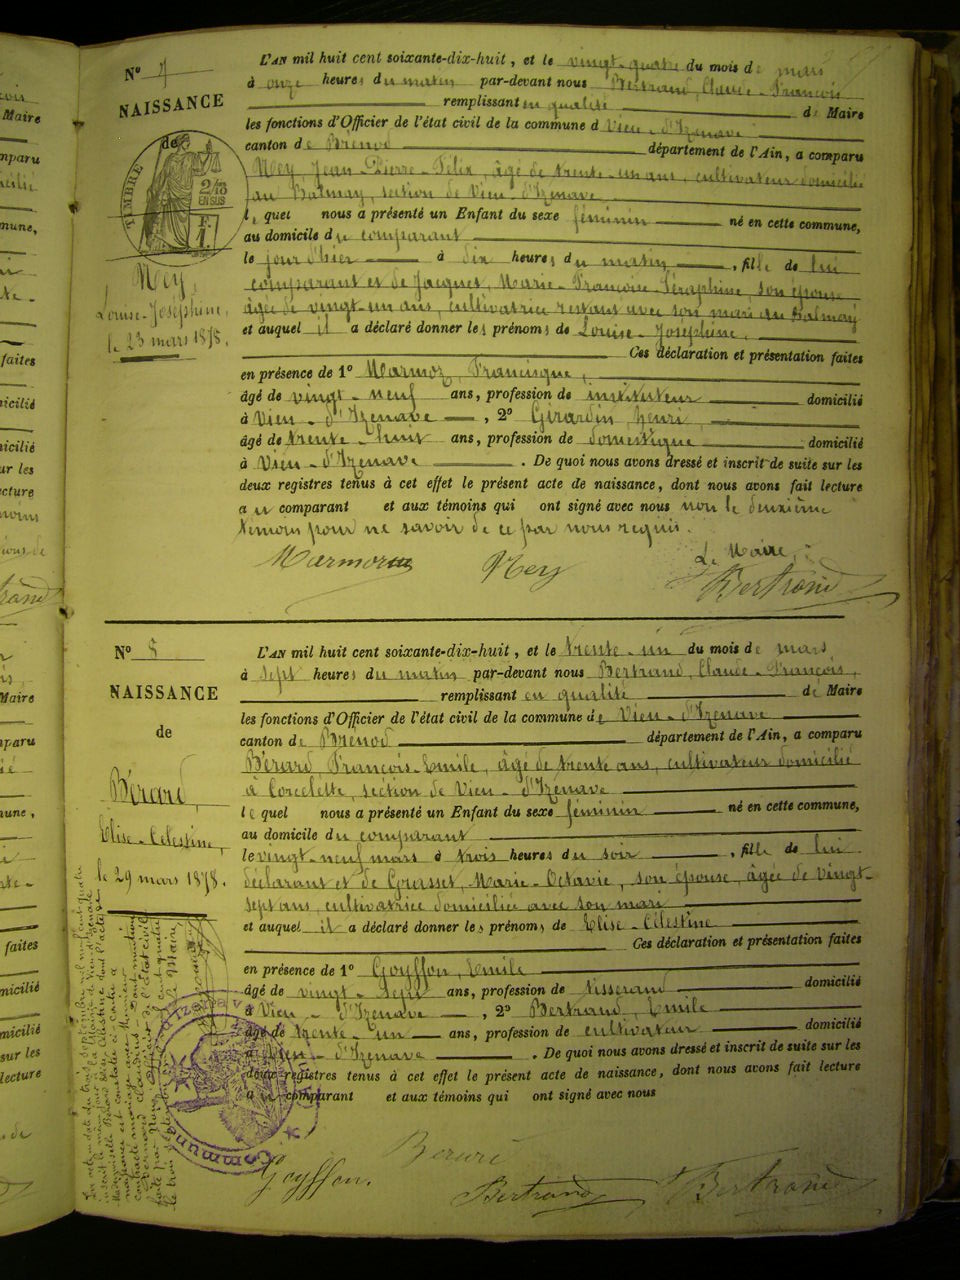 N° 4
NAISSANCE
de
TIMBRE
2/10
EN SUS
F.
1.
Ney,
Louise-Joséphine,
le 23 mars 1878.
L'AN mil huit cent soixante-dix-huit, et le vingt-quatre du mois de mars
à onze heures du matin par-devant nous Bertrand, Claude-François
remplissant en qualité de Maire
les fonctions d'Officier de l'état civil de la commune de Vieu-d'Izenave
canton de Brénod département de l'Ain, a comparu
Ney, Jean-Pierre-Félix, âgé de trente-un ans, cultivateur domicilié
au Balmay, section de Vieu-d'Izenave
le quel nous a présenté un Enfant du sexe féminin né en cette commune,
au domicile du comparant
le jour d'hier à dix heures du matin, fille de lui
comparant et de Jacquet, Marie-Françoise-Séraphine, son épouse
âgée de vingt-un ans, cultivatrice restant avec son mari au Balmay
et auquel il a déclaré donner les prénoms de Louise-Joséphine,
Ces déclaration et présentation faites
en présence de 1° Marmoz, Francisque,
âgé de vingt-neuf ans, profession de instituteur domicilié
à Vieu-d'Izenave, 2° Girardin, henri,
âgé de trente-huit ans, profession de domestique domicilié
à Vieu-d'Izenave. De quoi nous avons dressé et inscrit de suite sur les
deux registres tenus à cet effet le présent acte de naissance, dont nous avons fait lecture
au comparant et aux témoins qui ont signé avec nous non le deuxième
témoin pour ne savoir de ce par nous requis.
Le Maire,
Marmoz Ney Bertrand
N° 5
NAISSANCE
de
Bérard,
Elise-Célestine,
le 29 mars 1878.
L'AN mil huit cent soixante-dix-huit, et le trente-un du mois de mars
à sept heures du matin par-devant nous Bertrand, Claude-François,
remplissant en qualité de Maire
les fonctions d'Officier de l'état civil de la commune de Vieu-d'Izenave
canton de Brénod département de l'Ain, a comparu
Bérard François-Emile, âgé de trente ans, cultivateur domicilié
à Corcelette, section de Vieu-d'Izenave
le quel nous a présenté un Enfant du sexe féminin né en cette commune,
au domicile du comparant
le vingt-neuf mars à trois heures du soir, fille de lui
déclarant et de Gourset, Marie-Octavie, son épouse, âgée de vingt-
sept ans, cultivatrice domiciliée avec son mari
et auquel il a déclaré donner les prénoms de Elise-Célestine
Ces déclaration et présentation faites
en présence de 1° Goyffon, Emile
âgé de vingt-sept ans, profession de tisserand domicilié
à Vieu-d'Izenave, 2° Bertrand, Emile
âgé de trente-un ans, profession de cultivateur domicilié
à Vieu-d'Izenave. De quoi nous avons dressé et inscrit de suite sur les
deux registres tenus à cet effet le présent acte de naissance, dont nous avons fait lecture
au comparant et aux témoins qui ont signé avec nous
Bérard
Goyffon. Bertrand Bertrand